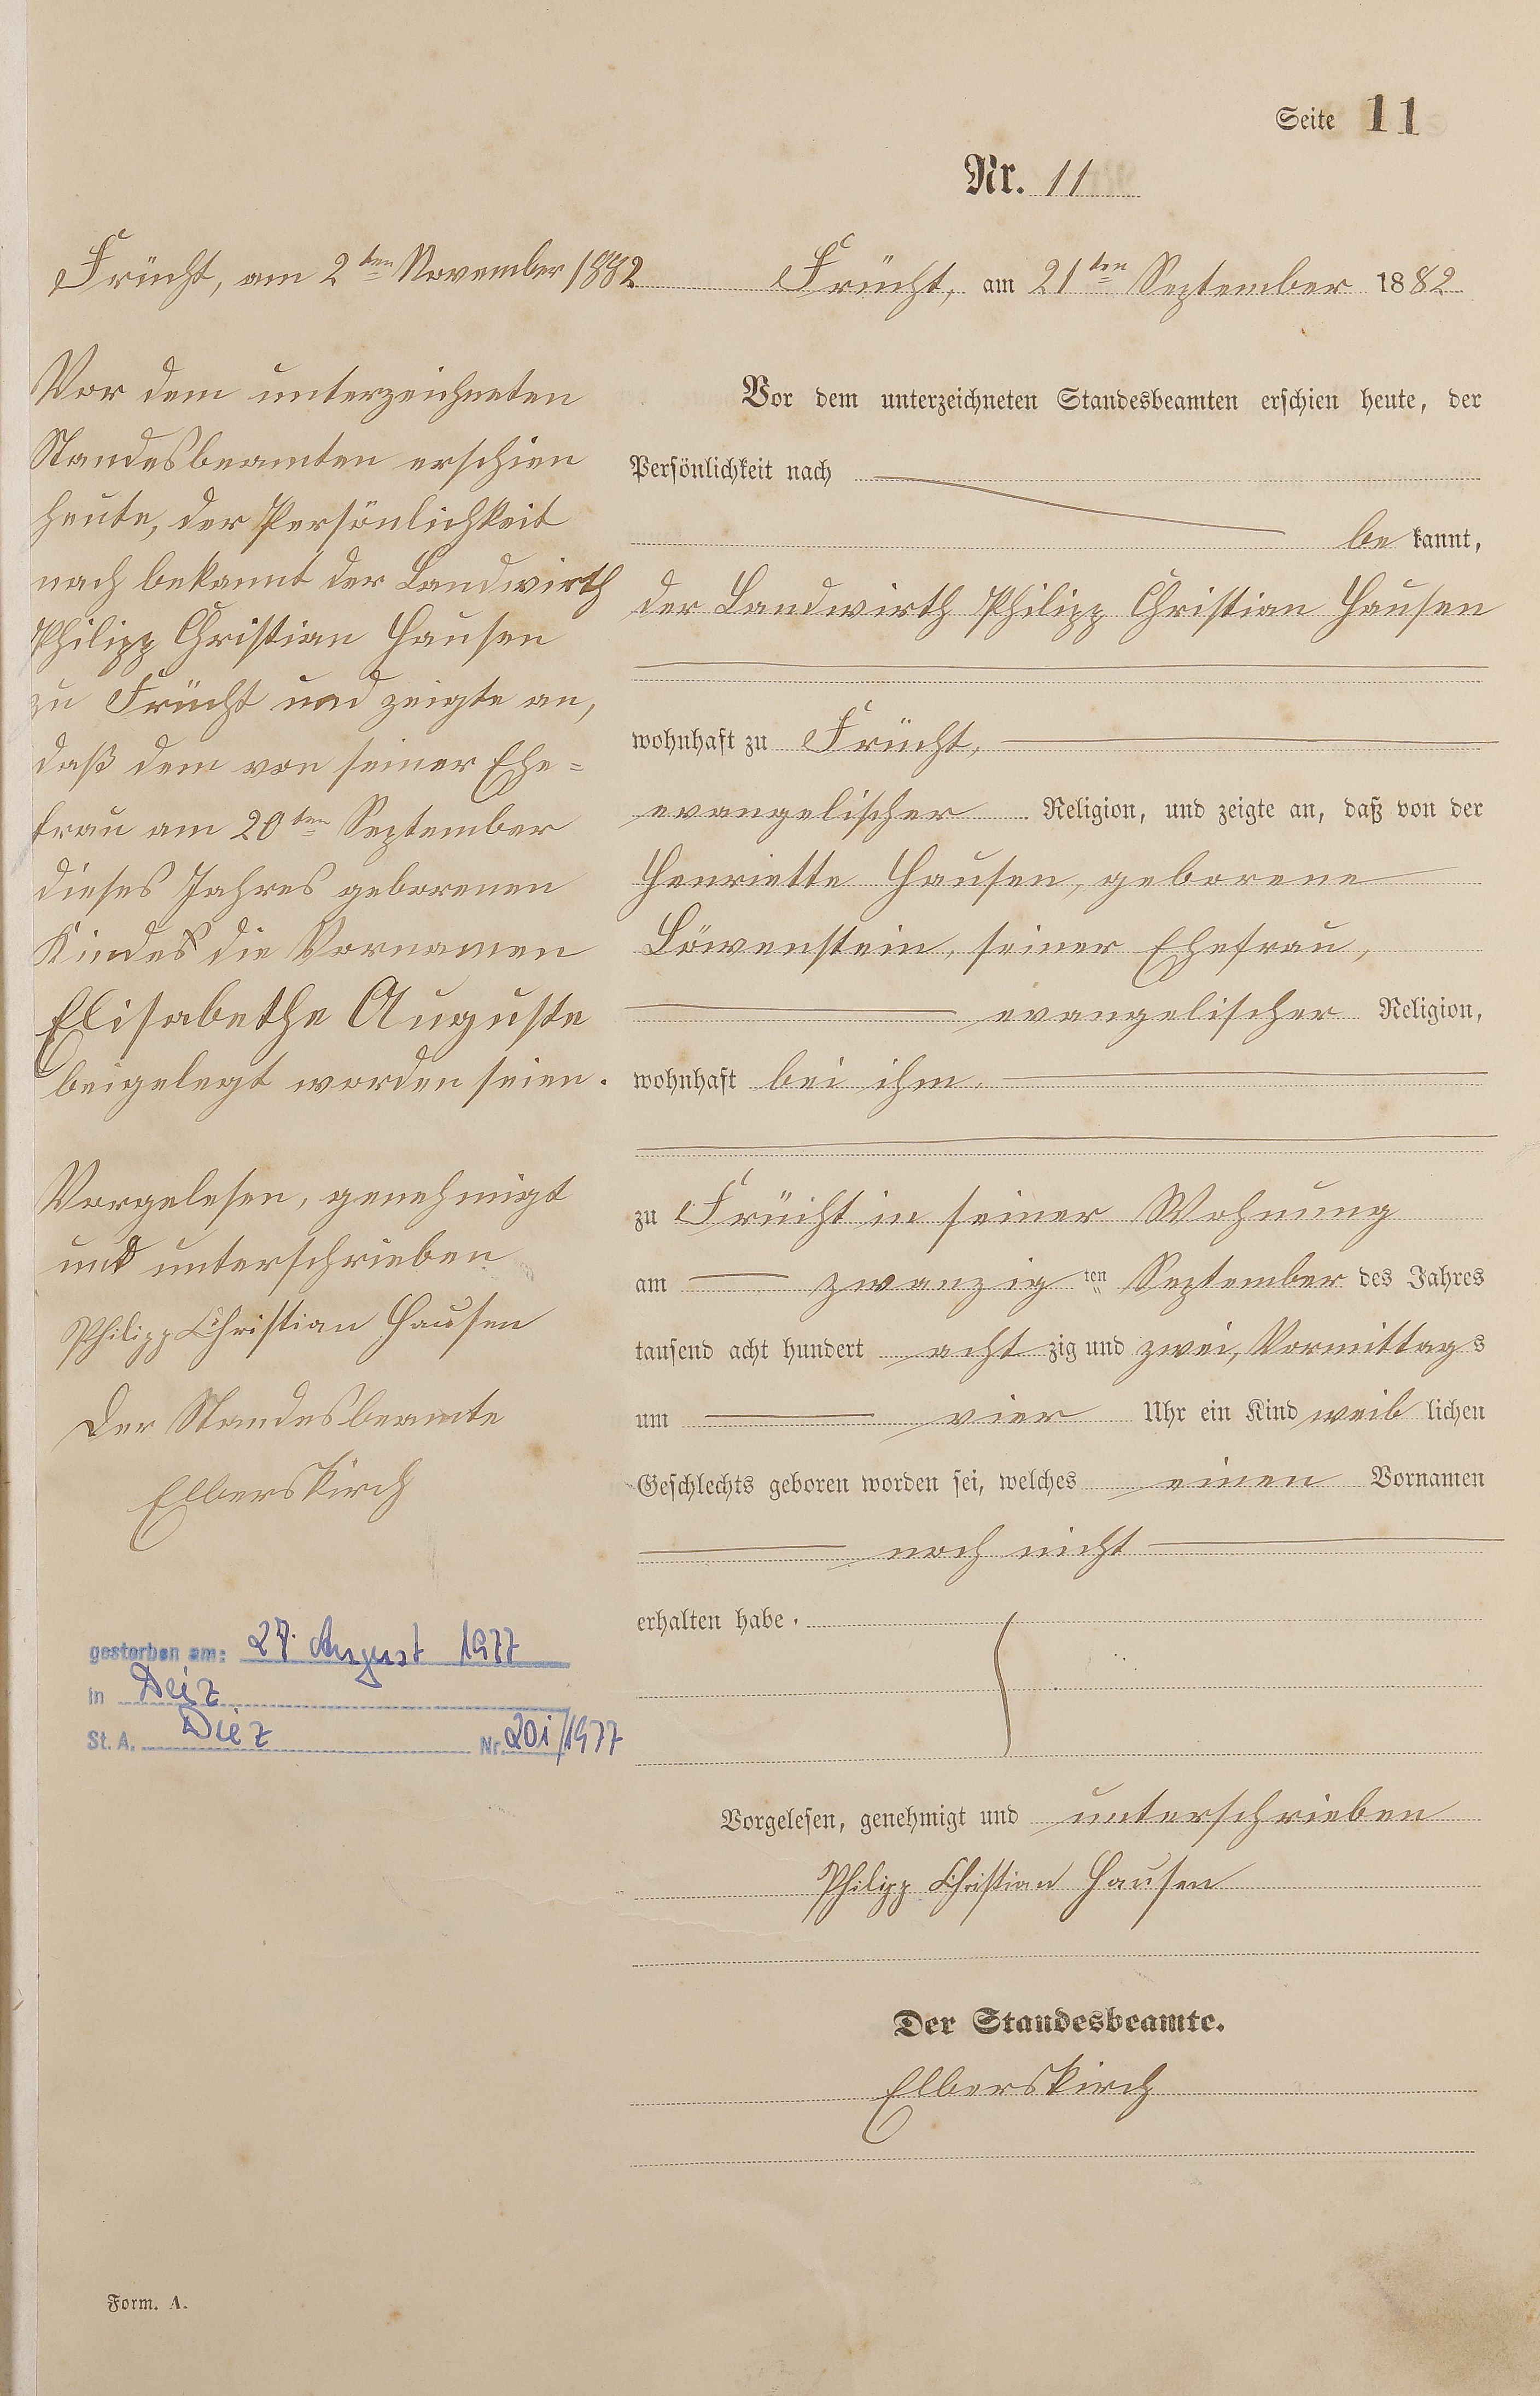 Seite 11
Nr. 11
Frücht, am 2ten November 1882
Vor dem unterzeichneten
Standesbeamten erschien
heute, der Persönlichkeit
nach bekannt der Landwirth
Philipp Christian Hausen
zu Frücht und zeigte an,
daß dem von seiner Ehe=
frau am 20ten September
dieses Jahres geborenen
Kindes die Vornamen
Elisabethe Auguste
beigelegt worden seien.
Vorgelesen, genehmigt
und unterschrieben
Philipp Christian Hausen
Der Standesbeamte
Elberskirch
gestorben am: 27. August 1977
in Deiz
St. A. Diez Nr. 201/1977
Frücht, am 21ten September 1882
Vor dem unterzeichneten Standesbeamten erschien heute, der
Persönlichkeit nach
be kannt,
der Landwirth Philipp Christian Hausen
wohnhaft zu Frücht,
evangelischer Religion, und zeigte an, daß von der
Henriette Hausen, geborene
Löwenstein, seiner Ehefrau,
evangelischer Religion,
wohnhaft bei ihm,
zu Frücht in seiner Wohnung
am zwanzig ten September des Jahres
tausend acht hundert acht zig und zwei, Vormittags
um vier Uhr ein Kind weib lichen
Geschlechts geboren worden sei, welches einen Vornamen
noch nicht
erhalten habe.
Vorgelesen, genehmigt und unterschrieben
Philipp Christian Hausen
Der Standesbeamte.
Elberskirch
Form. A.